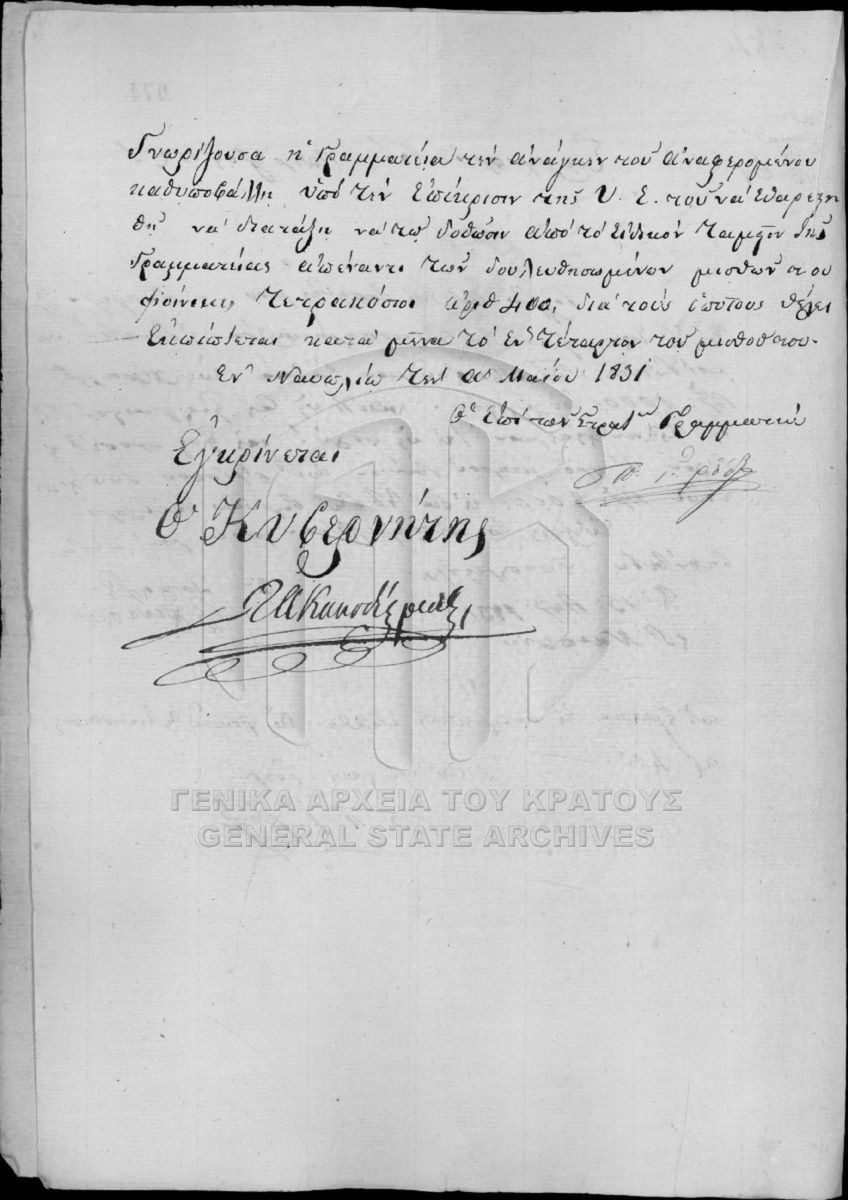 Γνωρίζουσα η Γραμματεία την ανάγκην του αναφερομένου
καθυποβάλλη υπό την επίκρισιν της Υ. Ε. του να ευαρεστη
θή να διατάξη να τω δοθώσιν από το Ειδικόν Ταμείον της
Γραμματείας απέναντι των δουλευθησωμένων μισθών του
φοίνικες τετρακόσιοι αριθ 400, δια τους οποίους θέλει
εκπίπτεται κατά μήνα το έν τέταρτον του μισθού του.
Εν Ναυπλίω την Μαΐου 1831
Ο επί των Στρατ Γραμματεύς
Εγκρίνεται
Ο Κυβερνήτης
Ι Α Καποδίστριας
ΓΕΝΙΚΑ ΑΡΧΕΙΑ ΤΟΥ ΚΡΑΤΟΥΣ
GENERAL STATE ARCHIVES